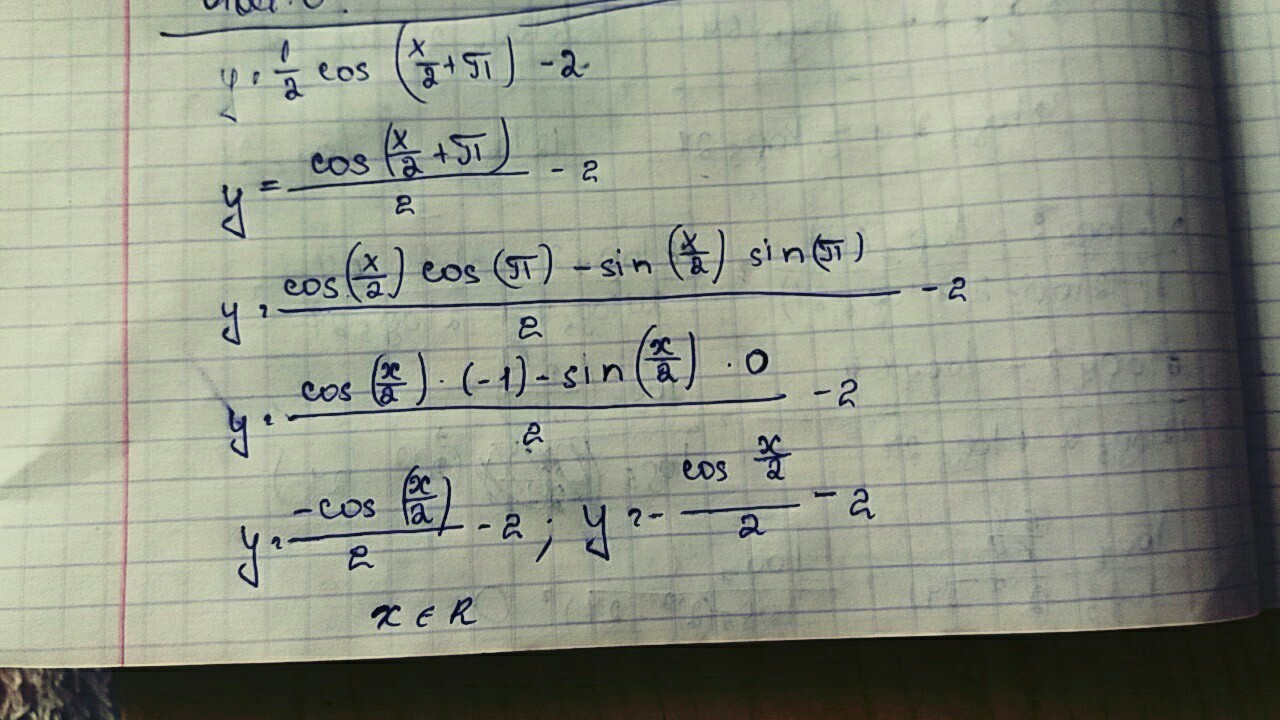 y = 1/2 cos (x/2 + π) - 2
y = cos (x/2 + π) / 2 - 2
y = (cos(x/2) cos(π) - sin(x/2) sin(π)) / 2 - 2
y = (cos(x/2) · (-1) - sin(x/2) · 0) / 2 - 2
y = -cos(x/2) / 2 - 2 ; y = - cos x/2 / 2 - 2
x ∈ R